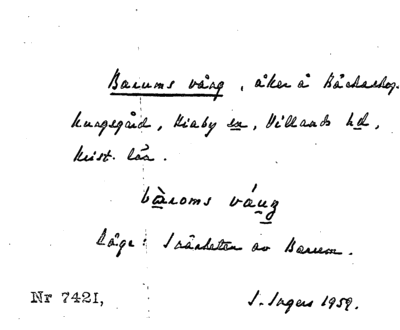 Barums vång, åker å Bäckaskog
kungsgård, Kiaby sn, Villands hd,
Krist. län.
bàroms váŋ
Läge: I närheten av Barum.
Nr 7421, I. Ingers 1959.